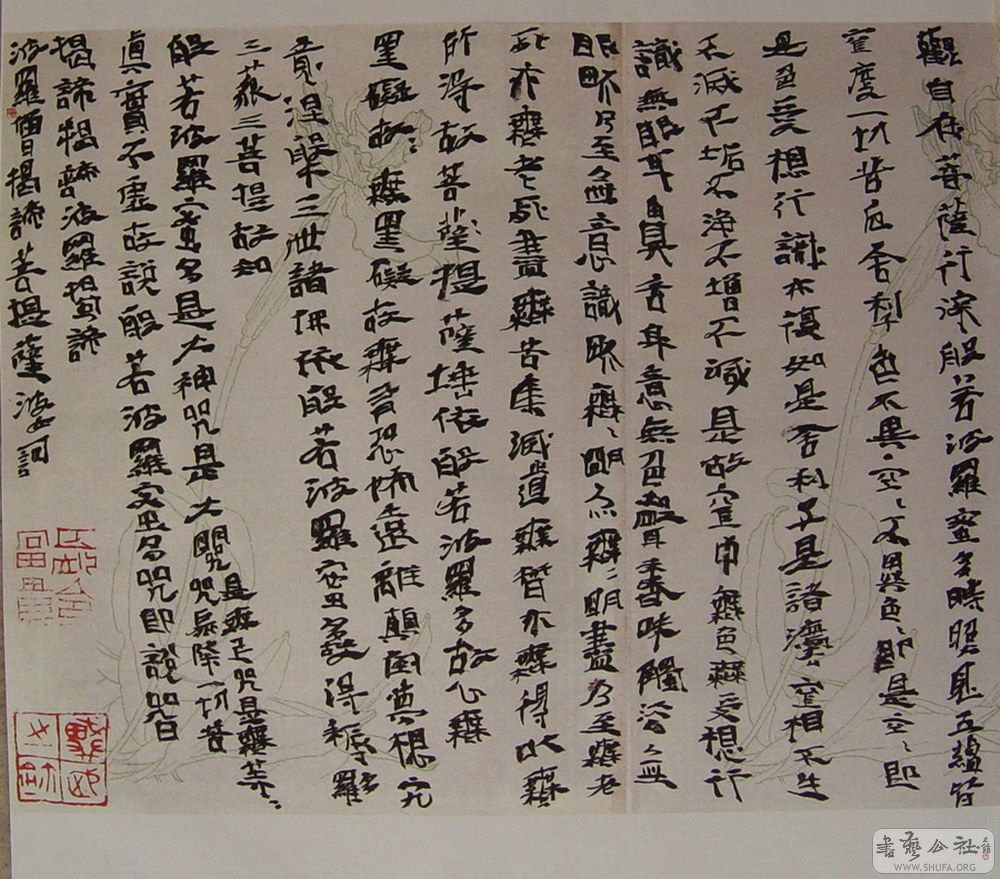 觀自在菩薩行深般若波羅蜜多時照見五蘊皆
空度一切苦厄舍利子色不異空〻不異色〻即是空〻即
是色受想行識亦復如是舍利子是諸灋空相不生
不滅不垢不淨不增不減是故空中無色無受想行
識無眼耳鼻舌身意無色聲香味觸法無
眼界乃至無意識界無〻明亦無〻明盡乃至無老
死亦無老死盡無苦集滅道無智亦無得以無
所得故菩薩提薩埵依般若波羅多故心無
罣礙故〻無罣礙故無有恐怖遠離顛倒夢想究
竟涅槃三世諸佛依般若波羅蜜多得耨多羅
三藐三菩提故知
般若波羅蜜多是大神咒是大明咒咒能除一切苦
是無上咒是無等〻
真實不虛故說般若波羅蜜多咒即說咒曰
揭諦揭諦波羅揭諦
波羅僧揭諦菩提薩婆訶
書藝公社
WWW.SHUFA.ORG